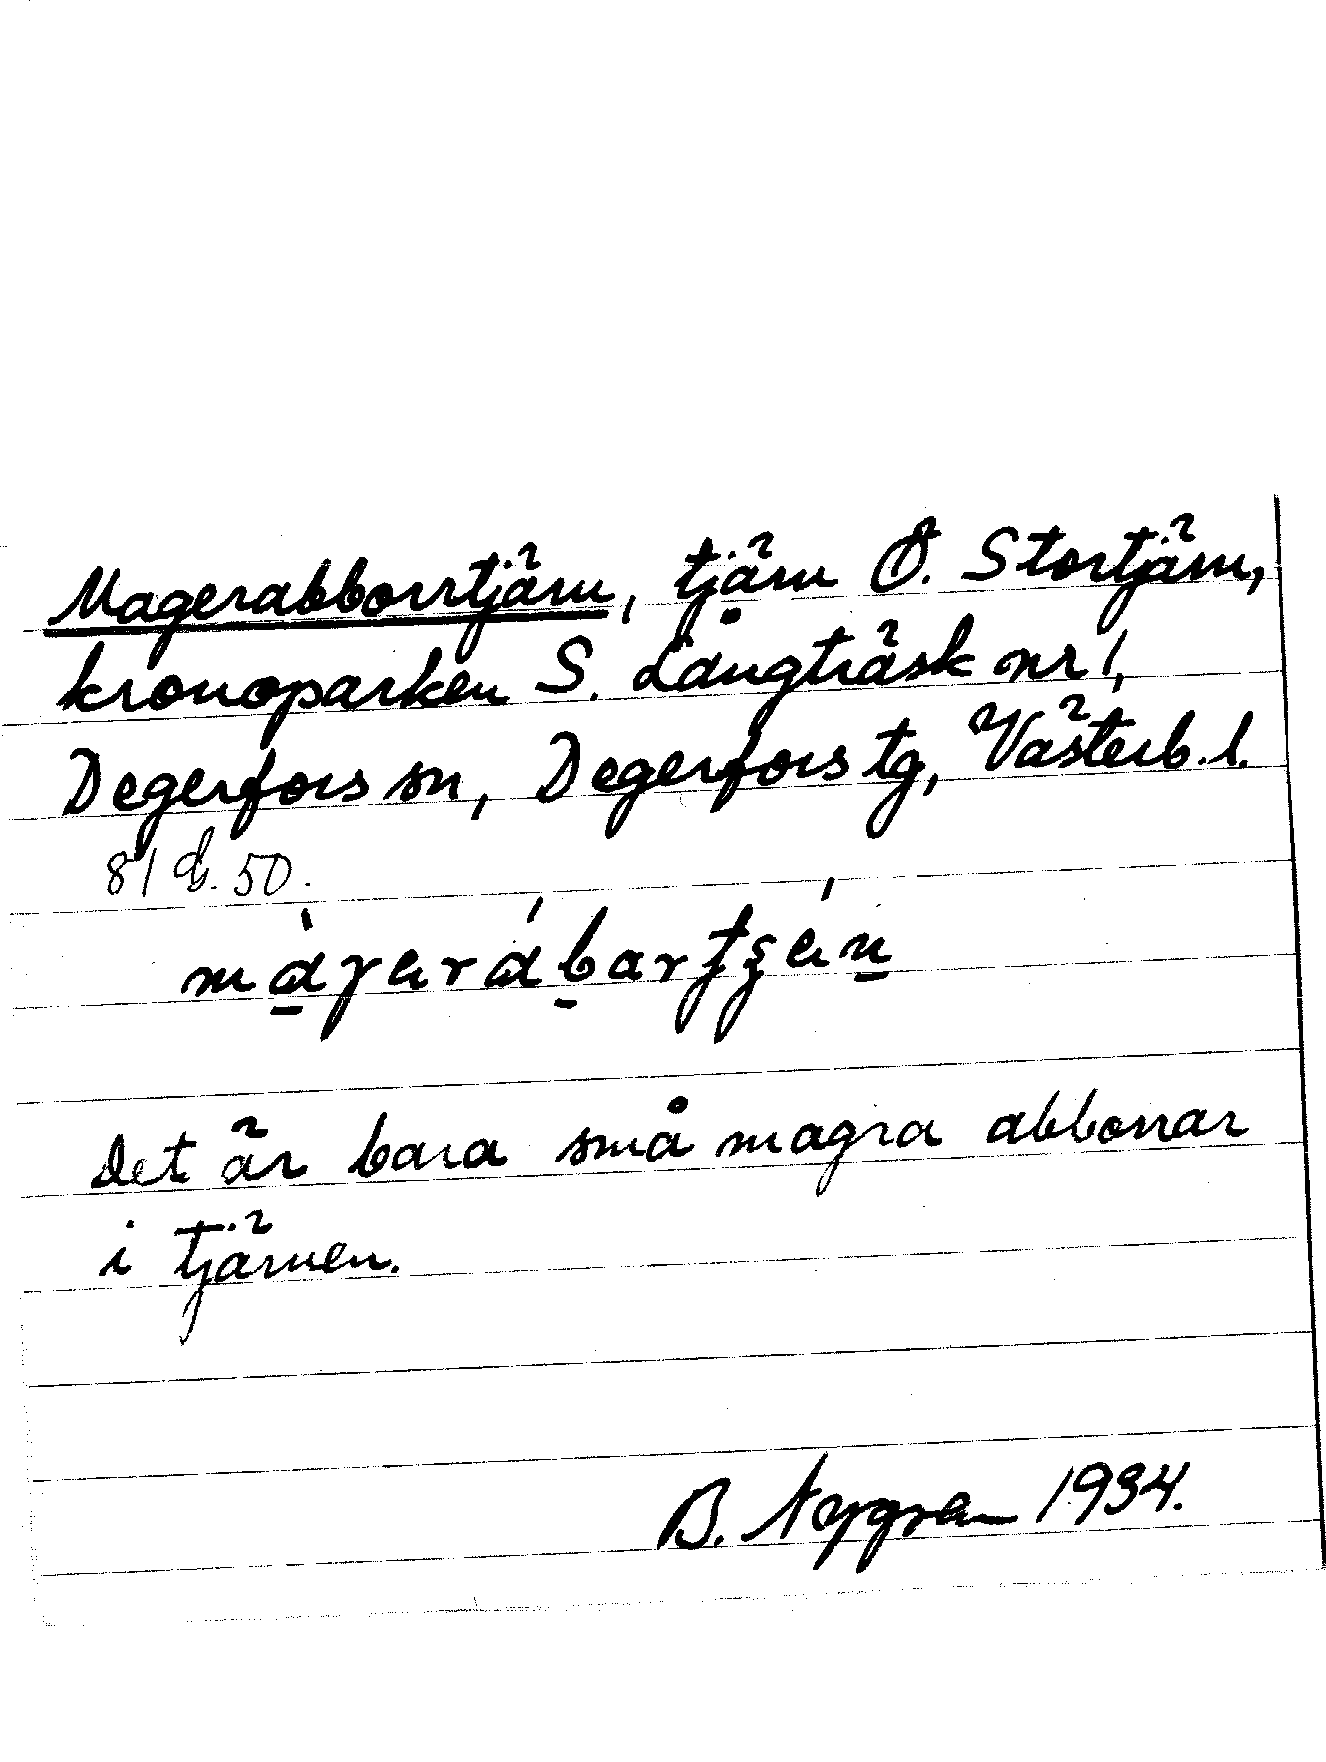 Magerabborrtjärn, tjärn Ö. Stortjärn,
kronoparken S. Långträsk nr 1,
Degerfors sn, Degerfors tg, Västerb. l.
81 50.
Det är bara små magra abborrar
i tjärnen.
B. Nygren 1934.